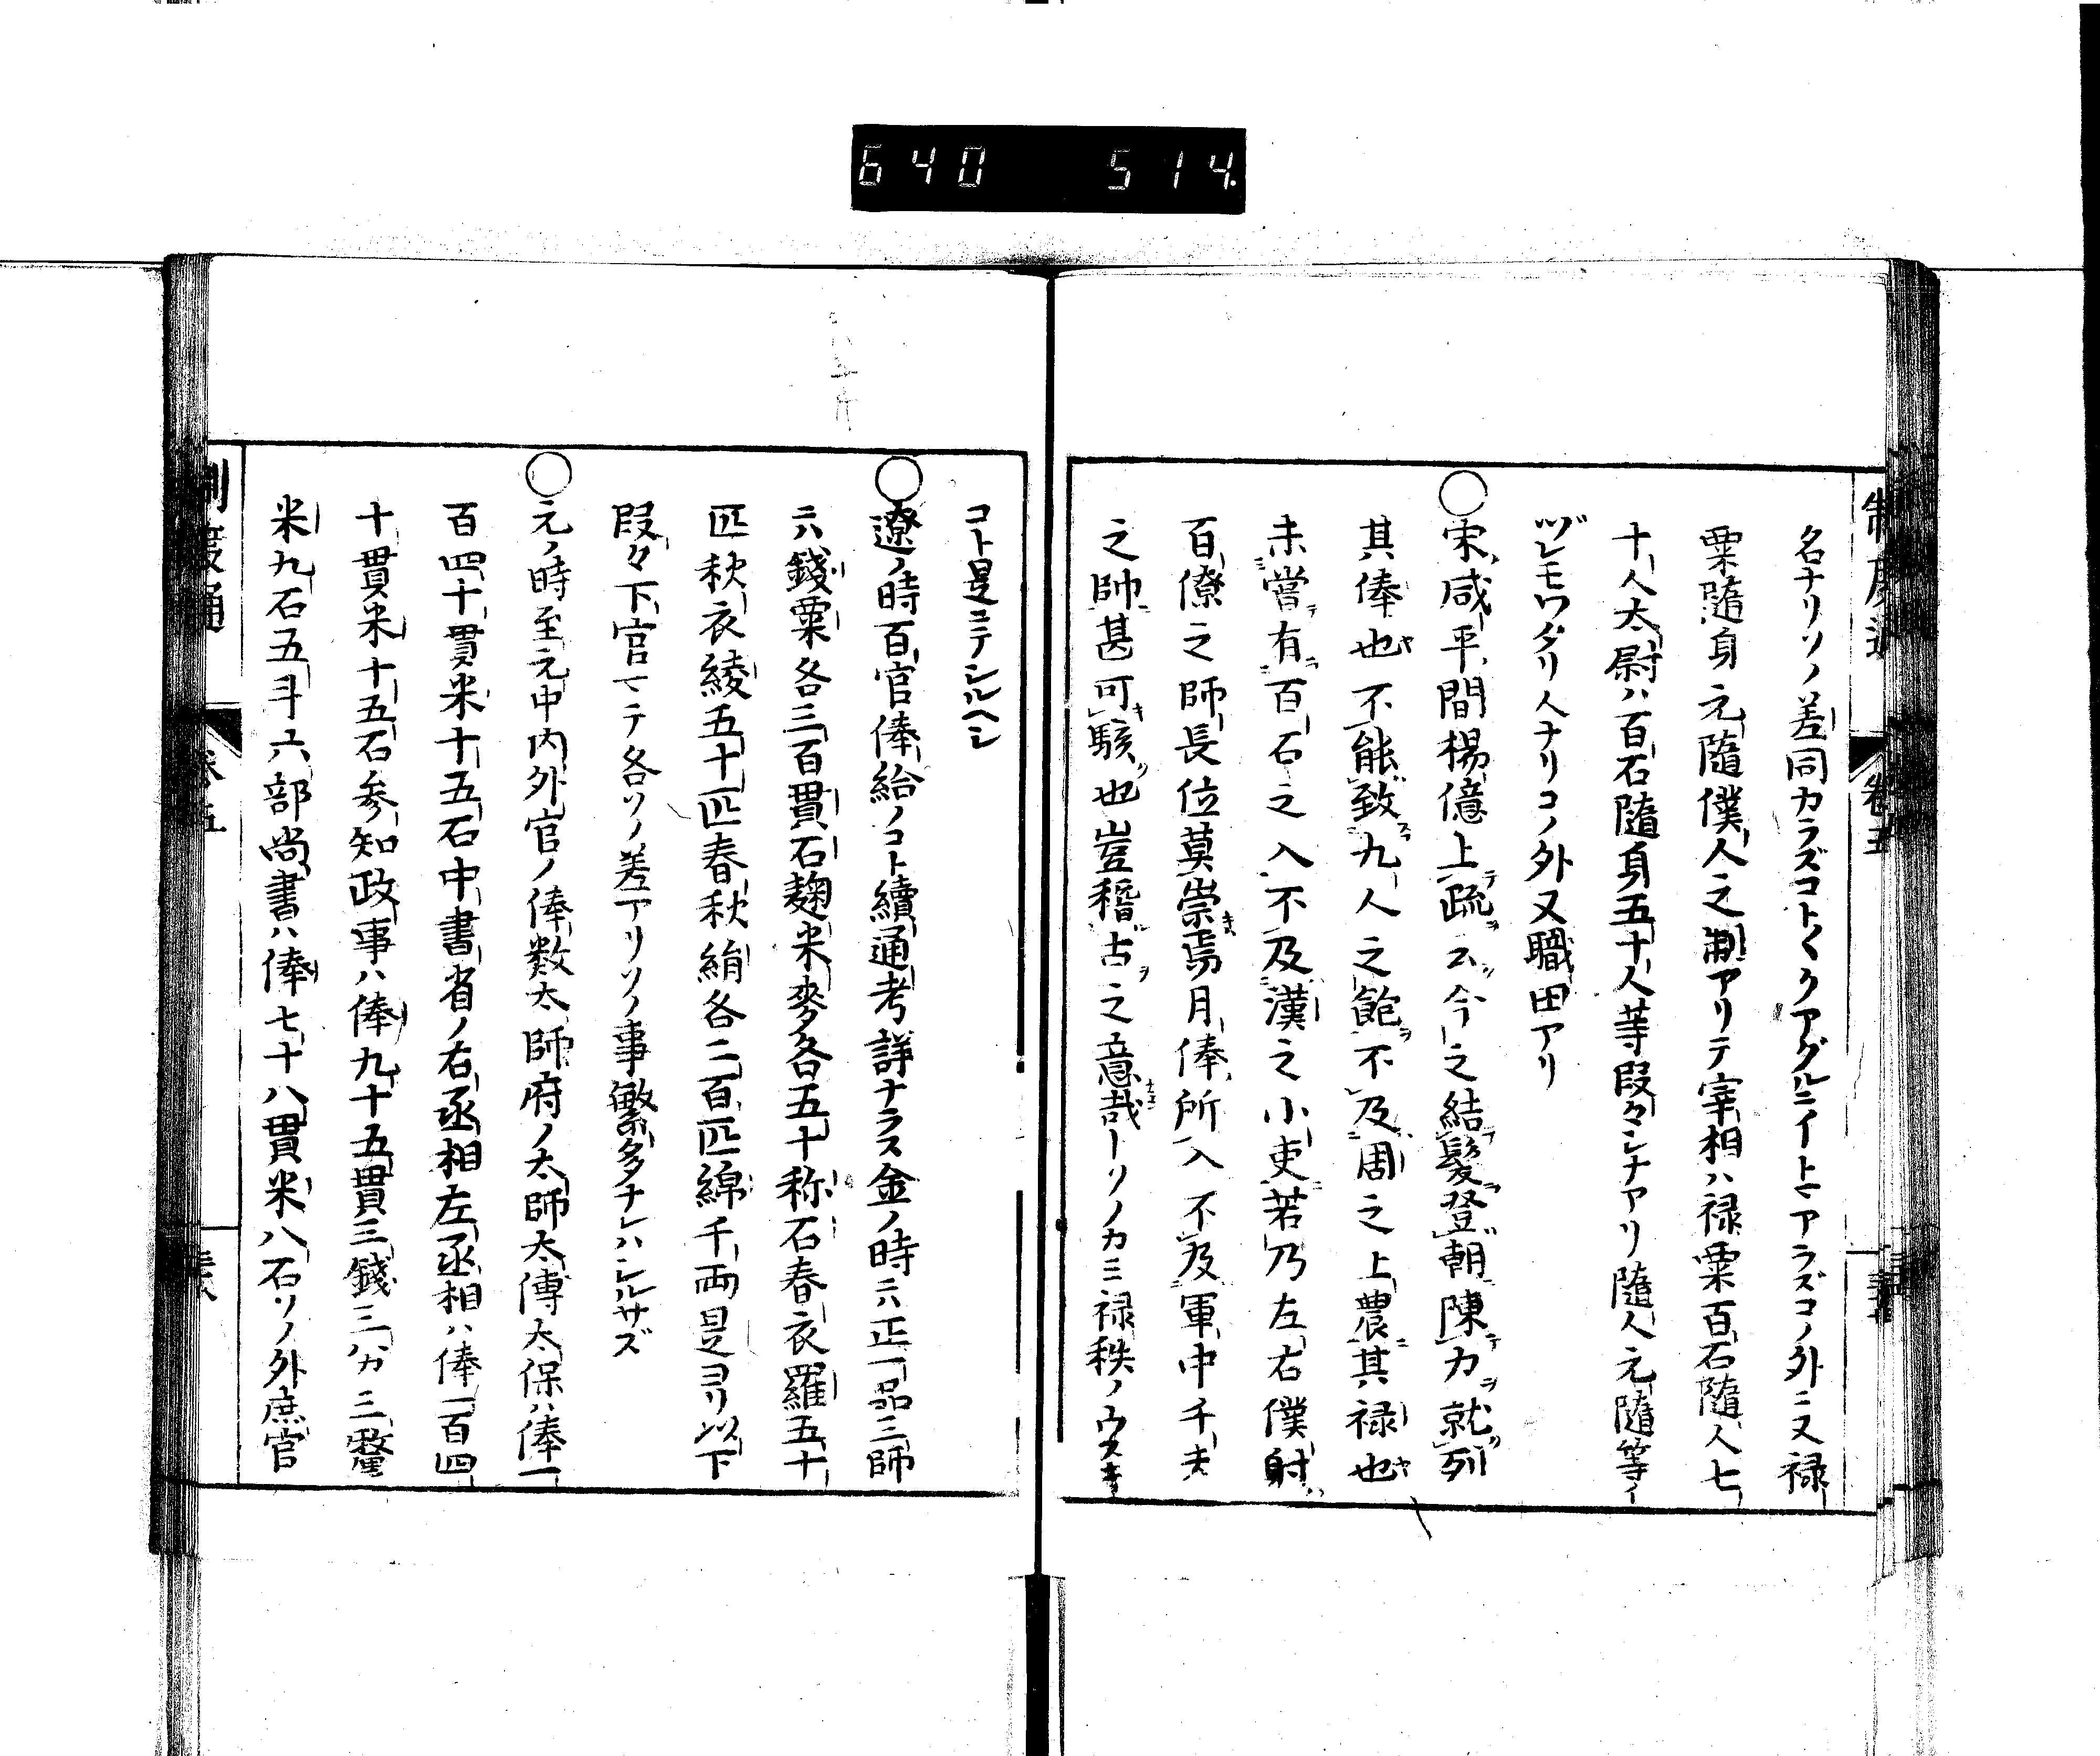 640 514
制度通 卷五
名ナリソノ差同カラズコト〱クアグルニイトマアラズコノ外ニ又禄
粟隨身元隨僕人之制アリテ宰相ハ禄粟百石隨人七
十人太尉ハ百石隨身五十人等段々シナアリ隨人元隨等イ
ヅレモワタリ人ナリコノ外又職田アリ
○宋咸平間楊億上疏云今之結髮登朝陳力就列
其俸也不能致九人之飽不及周之上農其禄也
未嘗有百石之入不及漢之小吏若乃左右僕射
百僚之師長位莫崇焉月俸所入不及軍中千夫
之帥甚可駭也豈稽古之意哉トソノカミ禄秩ノウスキ
コト是ニテシルヘシ
○遼ノ時百官俸給ノコト續通考詳ナラス金ノ時ニハ正一品三師
ニハ錢粟各三百貫石麹米麥各五十称石春衣羅五十
匹秋衣綾五十匹春秋絹各二百匹綿千両是ヨリ以下
段々下官マテ各ソノ差アリソノ事繁多ナレハシルサズ
○元ノ時至元中内外官ノ俸数太師府ノ太師太傅太保ハ俸一
百四十貫米十五石中書省ノ右丞相左丞相ハ俸一百四
十貫米十五石参知政事ハ俸九十五貫三錢三分三釐
米九石五斗六部尚書ハ俸七十八貫米八石ソノ外庶官
制度通 卷五